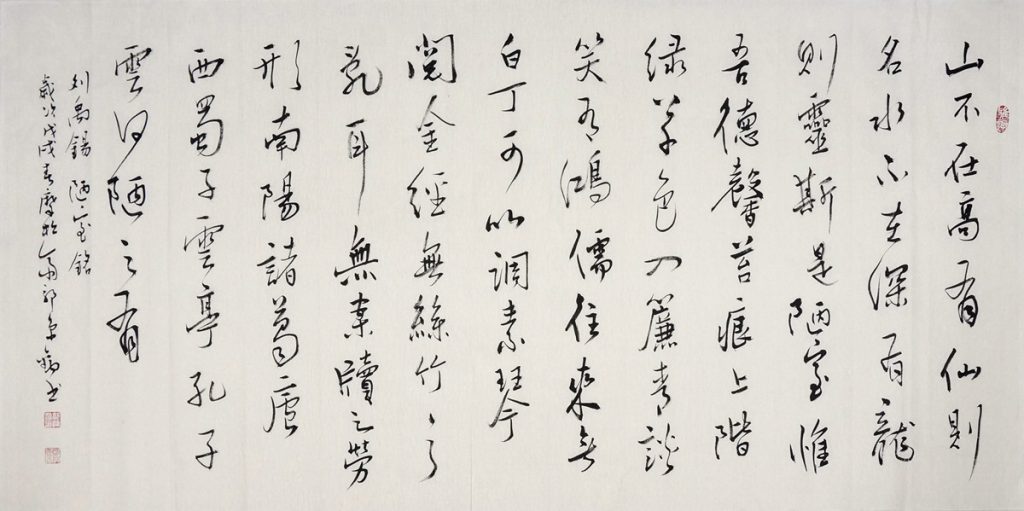 山不在高有仙則
名水不在深有龍
則靈斯是陋室惟
吾德馨苔痕上階
绿草色入簾青談
笑有鴻儒往來無
白丁可以調素琴
閱金經無絲竹之
亂耳無案牘之勞
形南陽諸葛廬
西蜀子雲亭孔子
雲何陋之有
刘禹錫 陋室銘
歲次戊戌春